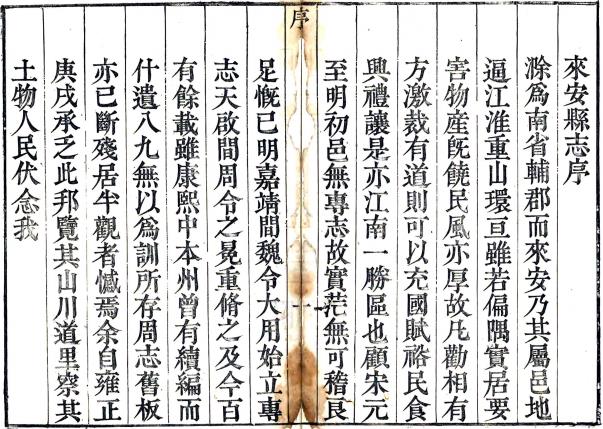 來安縣志序
滁爲南省輔郡而來安乃其屬邑地
逼江淮重山環亘雖若偏隅實居要
害物產既饒民風亦厚故凡勸相有
方激裁有道則可以充國賦裕民食
興禮讓是亦江南一勝區也顧宋元
序
一
至明初邑無專志故實茫無可稽良
足慨已明嘉靖間魏令大用始立專
志天啟間周令之冕重脩之及今百
有餘載雖康熙中本州曾有續編而
什遺八九無以爲訓所存周志舊板
亦已斷殘居半觀者憾焉余自雍正
庚戌承乏此邦覽其山川道里察其
土物人民伏念我